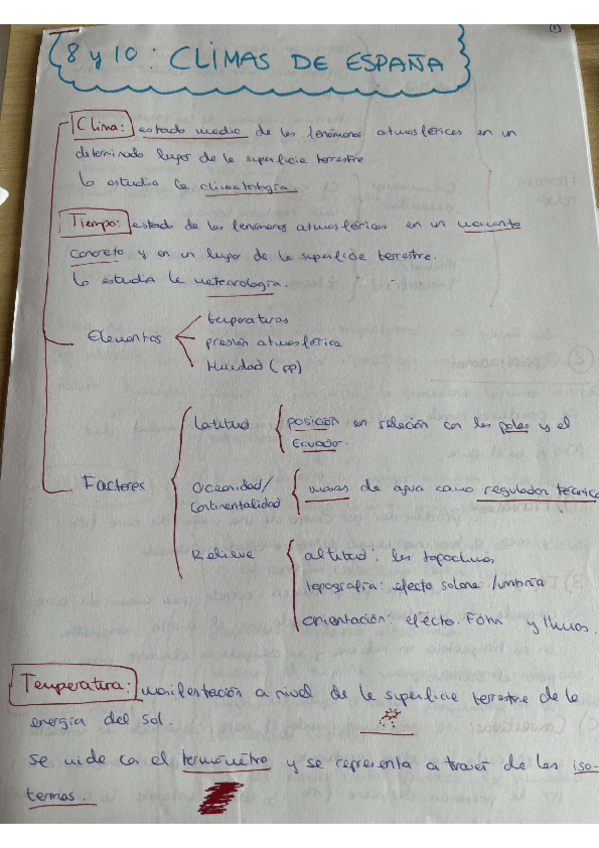 (1)
8 y 10: CLIMAS DE ESPAÑA
Clima: estado medio de los fenómenos atmosféricos en un
determinado lugar de la superficie terrestre.
Lo estudia la climatología.
Tiempo: estado de los fenómenos atmosféricos en un momento
concreto y en un lugar de la superficie terrestre.
Lo estudia la meteorología.
Elementos
temperaturas
presión atmosférica
Humedad (PP)
Factores
Latitud
posición en relación con los polos y el
Ecuador.
Oceanidad/
Continentalidad
masas de agua como regulador térmico
Relieve
altitud: les
topografía: efecto solana /umbría
orientación: efecto Föhn y lluvias.
Temperatura: manifestación a nivel de la superficie terrestre de la
energía del sol.
Se mide con el termómetro y se representa a través de las iso-
termas.